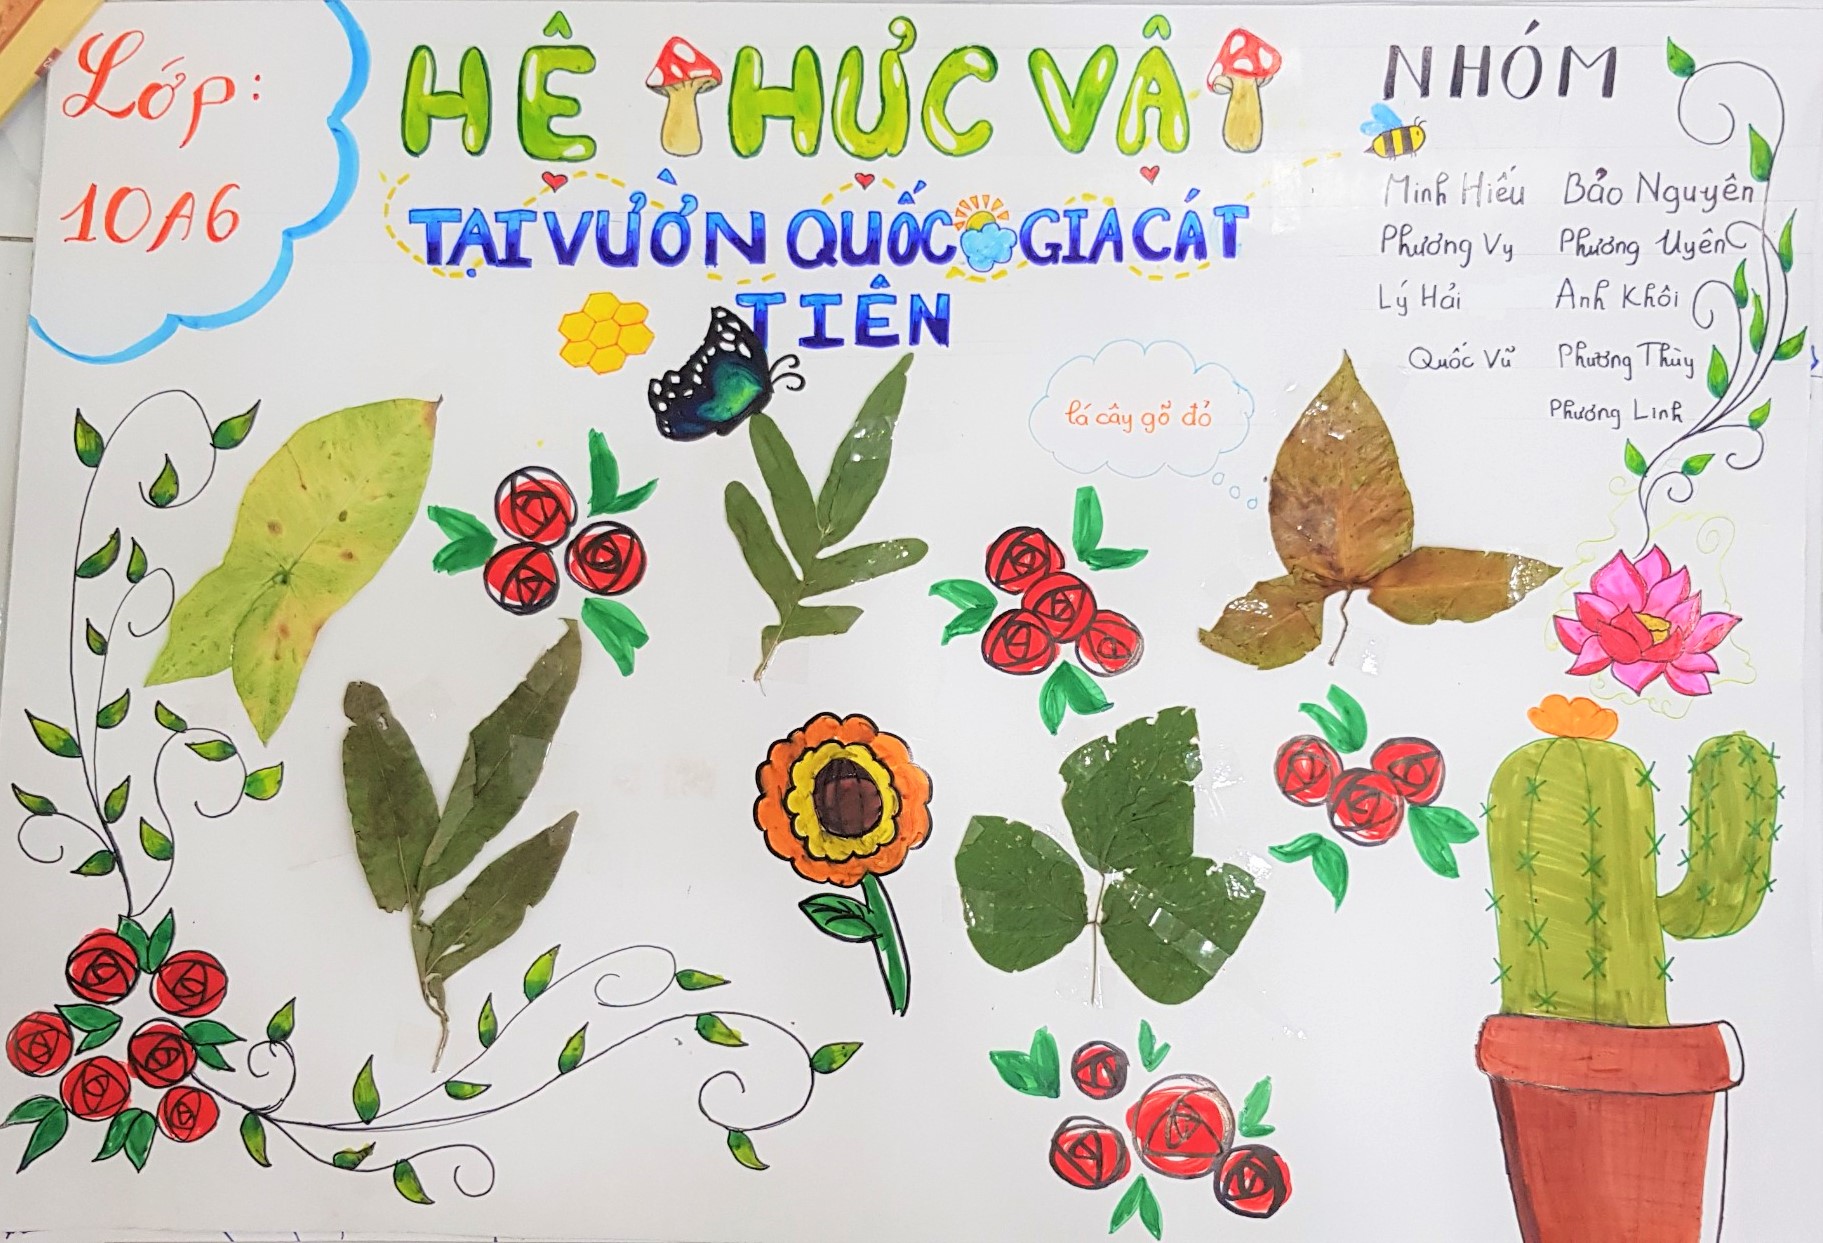 Lớp:
10A6
HỆ THỰC VẬT
TẠI VƯỜN QUỐC GIA CÁT
TIÊN
NHÓM
Minh Hiếu Bảo Nguyên
Phương Vy Phương Uyên
Lý Hải Anh Khôi
Quốc Vũ Phương Thùy
Phương Linh
lá cây gỗ đỏ